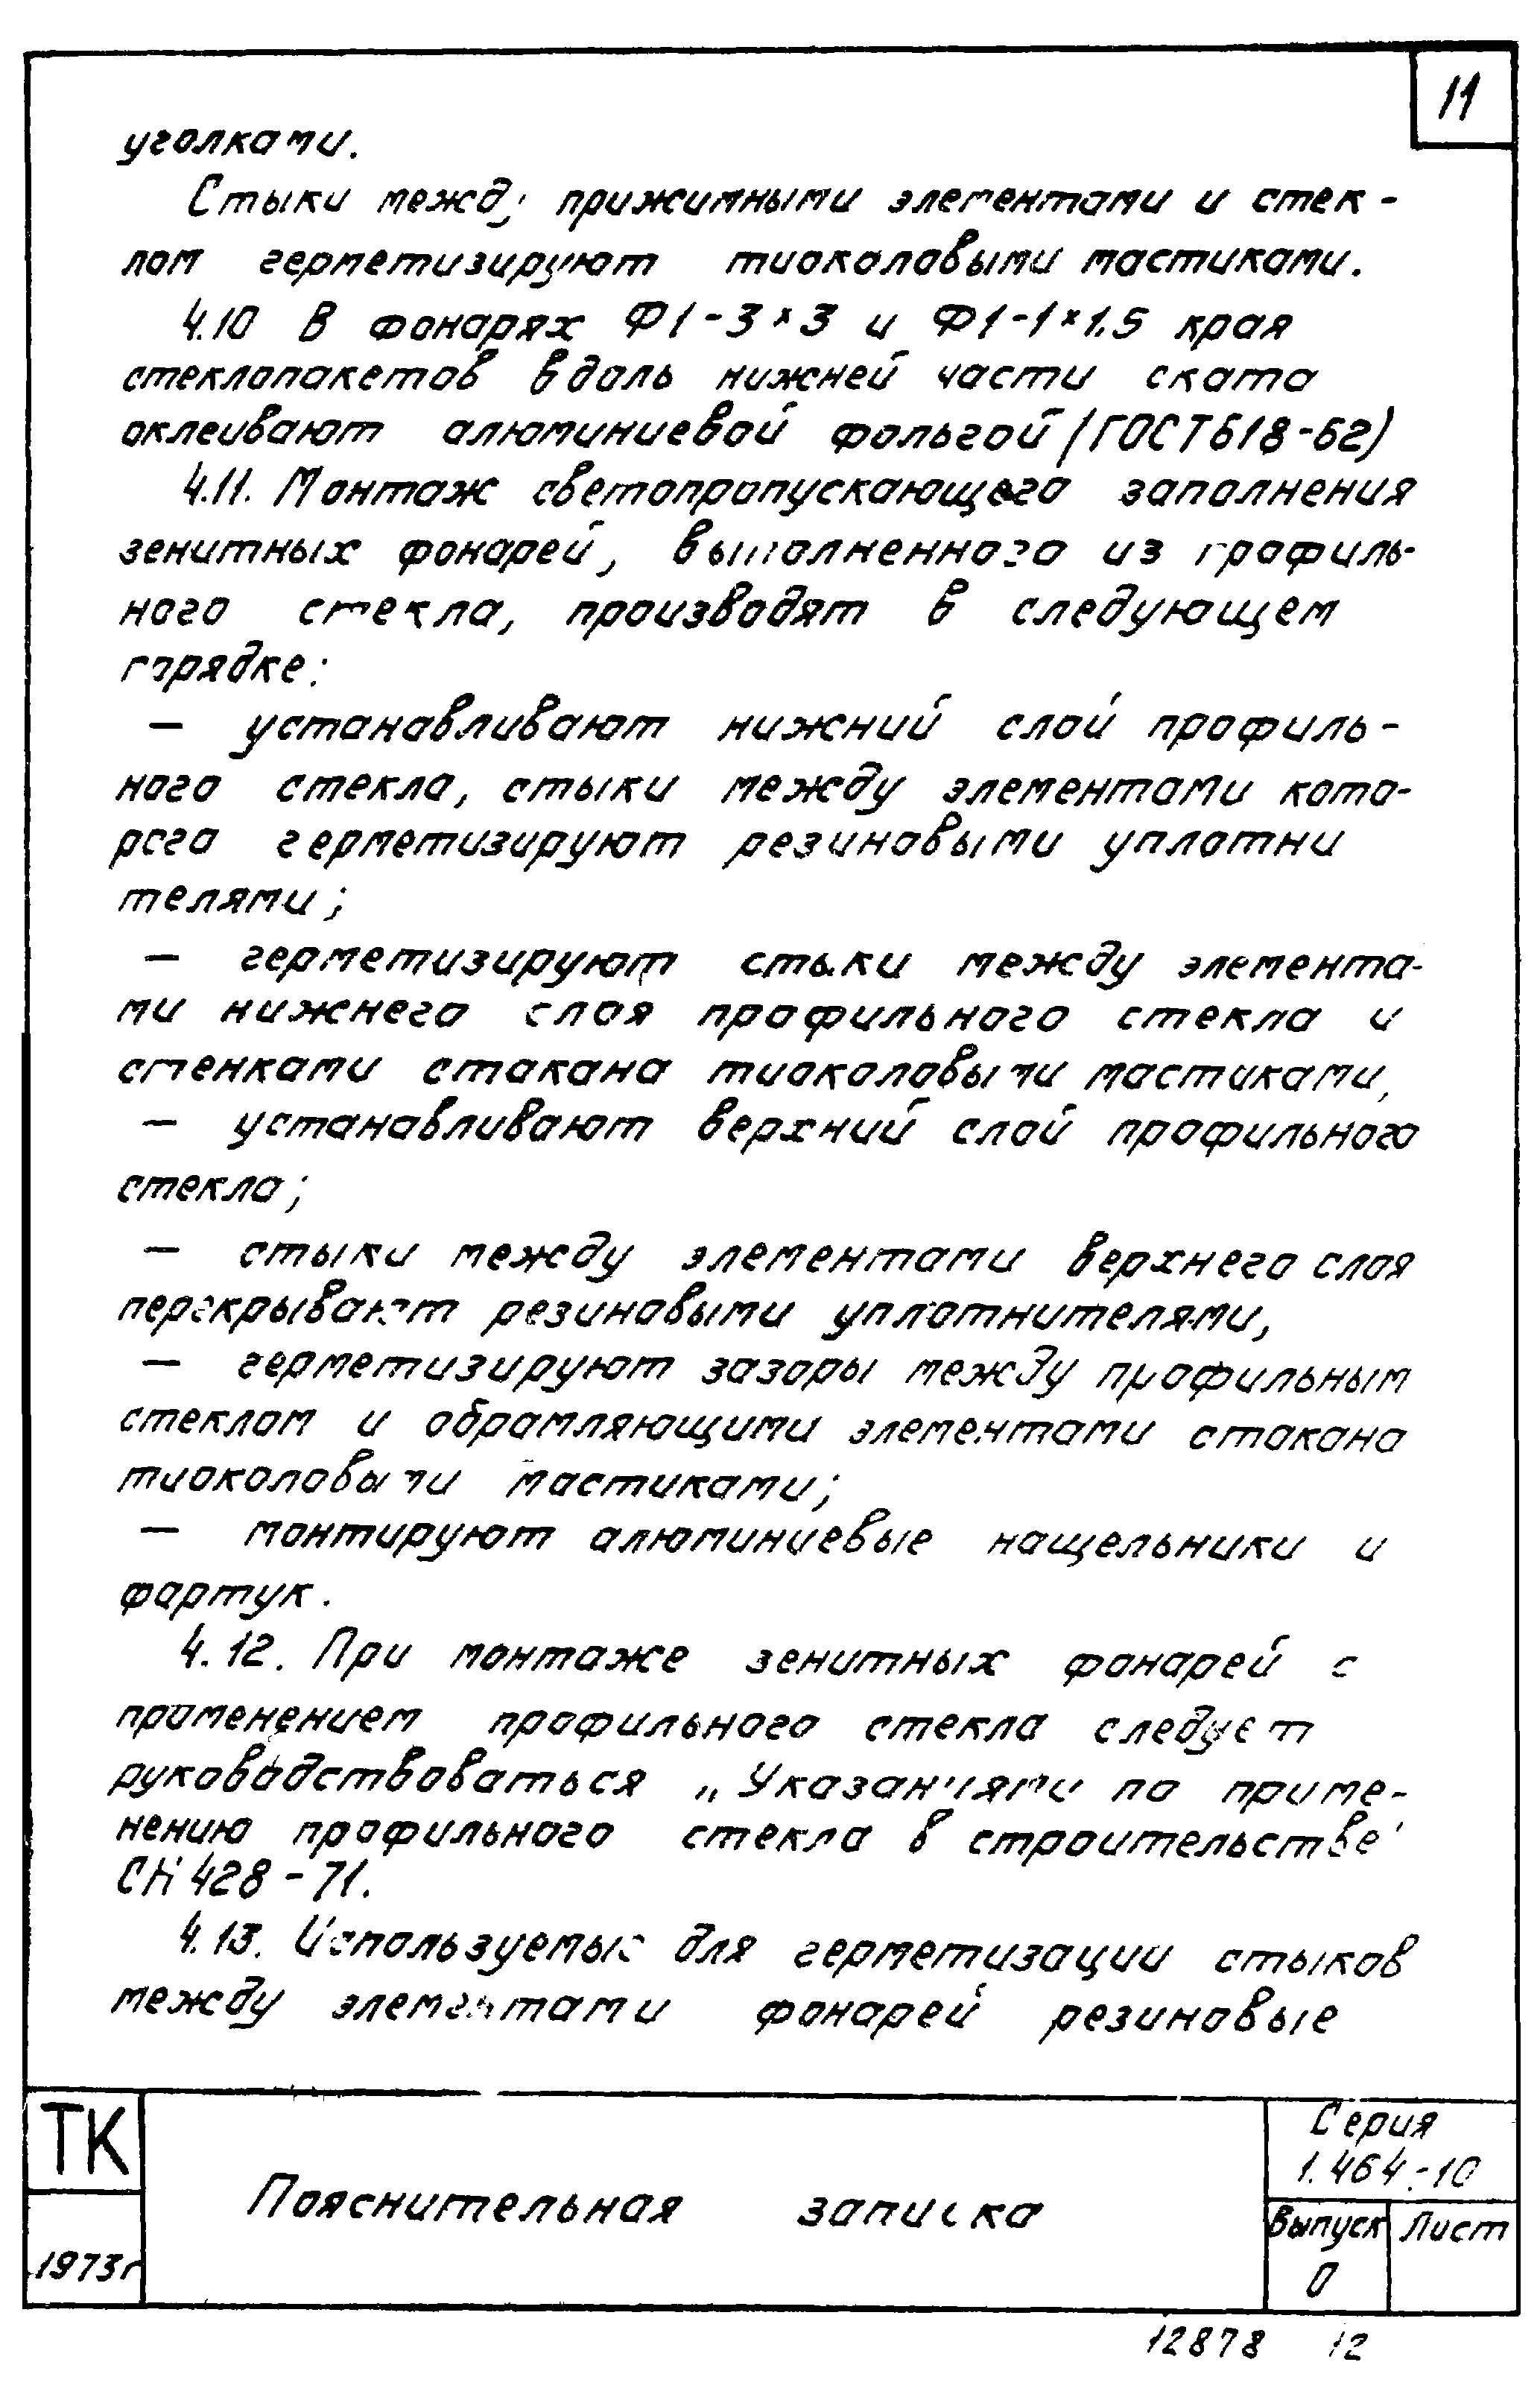 11
уголками.
Стыки между прижимными элементами и стек-
лом герметизируют тиоколовыми мастиками.
4.10 В фонарях Ф1-3×3 и Ф1-1×1.5 края
стеклопакетов вдоль нижней части ската
оклеивают алюминиевой фольгой (ГОСТ 618-62)
4.11. Монтаж светопропускающего заполнения
зенитных фонарей, выполненного из профиль-
ного стекла, производят в следующем
порядке:
— устанавливают нижний слой профиль-
ного стекла, стыки между элементами кото-
рого герметизируют резиновыми уплотни
телями;
— герметизируют стыки между элемента-
ми нижнего слоя профильного стекла и
стенками стакана тиоколовыми мастиками,
— устанавливают верхний слой профильного
стекла;
— стыки между элементами верхнего слоя
перекрывают резиновыми уплотнителями,
— герметизируют зазоры между профильным
стеклом и обрамляющими элементами стакана
тиоколовыми мастиками;
— монтируют алюминиевые нащельники и
фартук.
4.12. При монтаже зенитных фонарей с
применением профильного стекла следует
руководствоваться „Указаниями по приме-
нению профильного стекла в строительстве"
СН 428-71.
4.13. Используемые для герметизации стыков
между элементами фонарей резиновые
ТК
1973г
Пояснительная записка
Серия
1.464-10
Выпуск Лист
0
12878 12